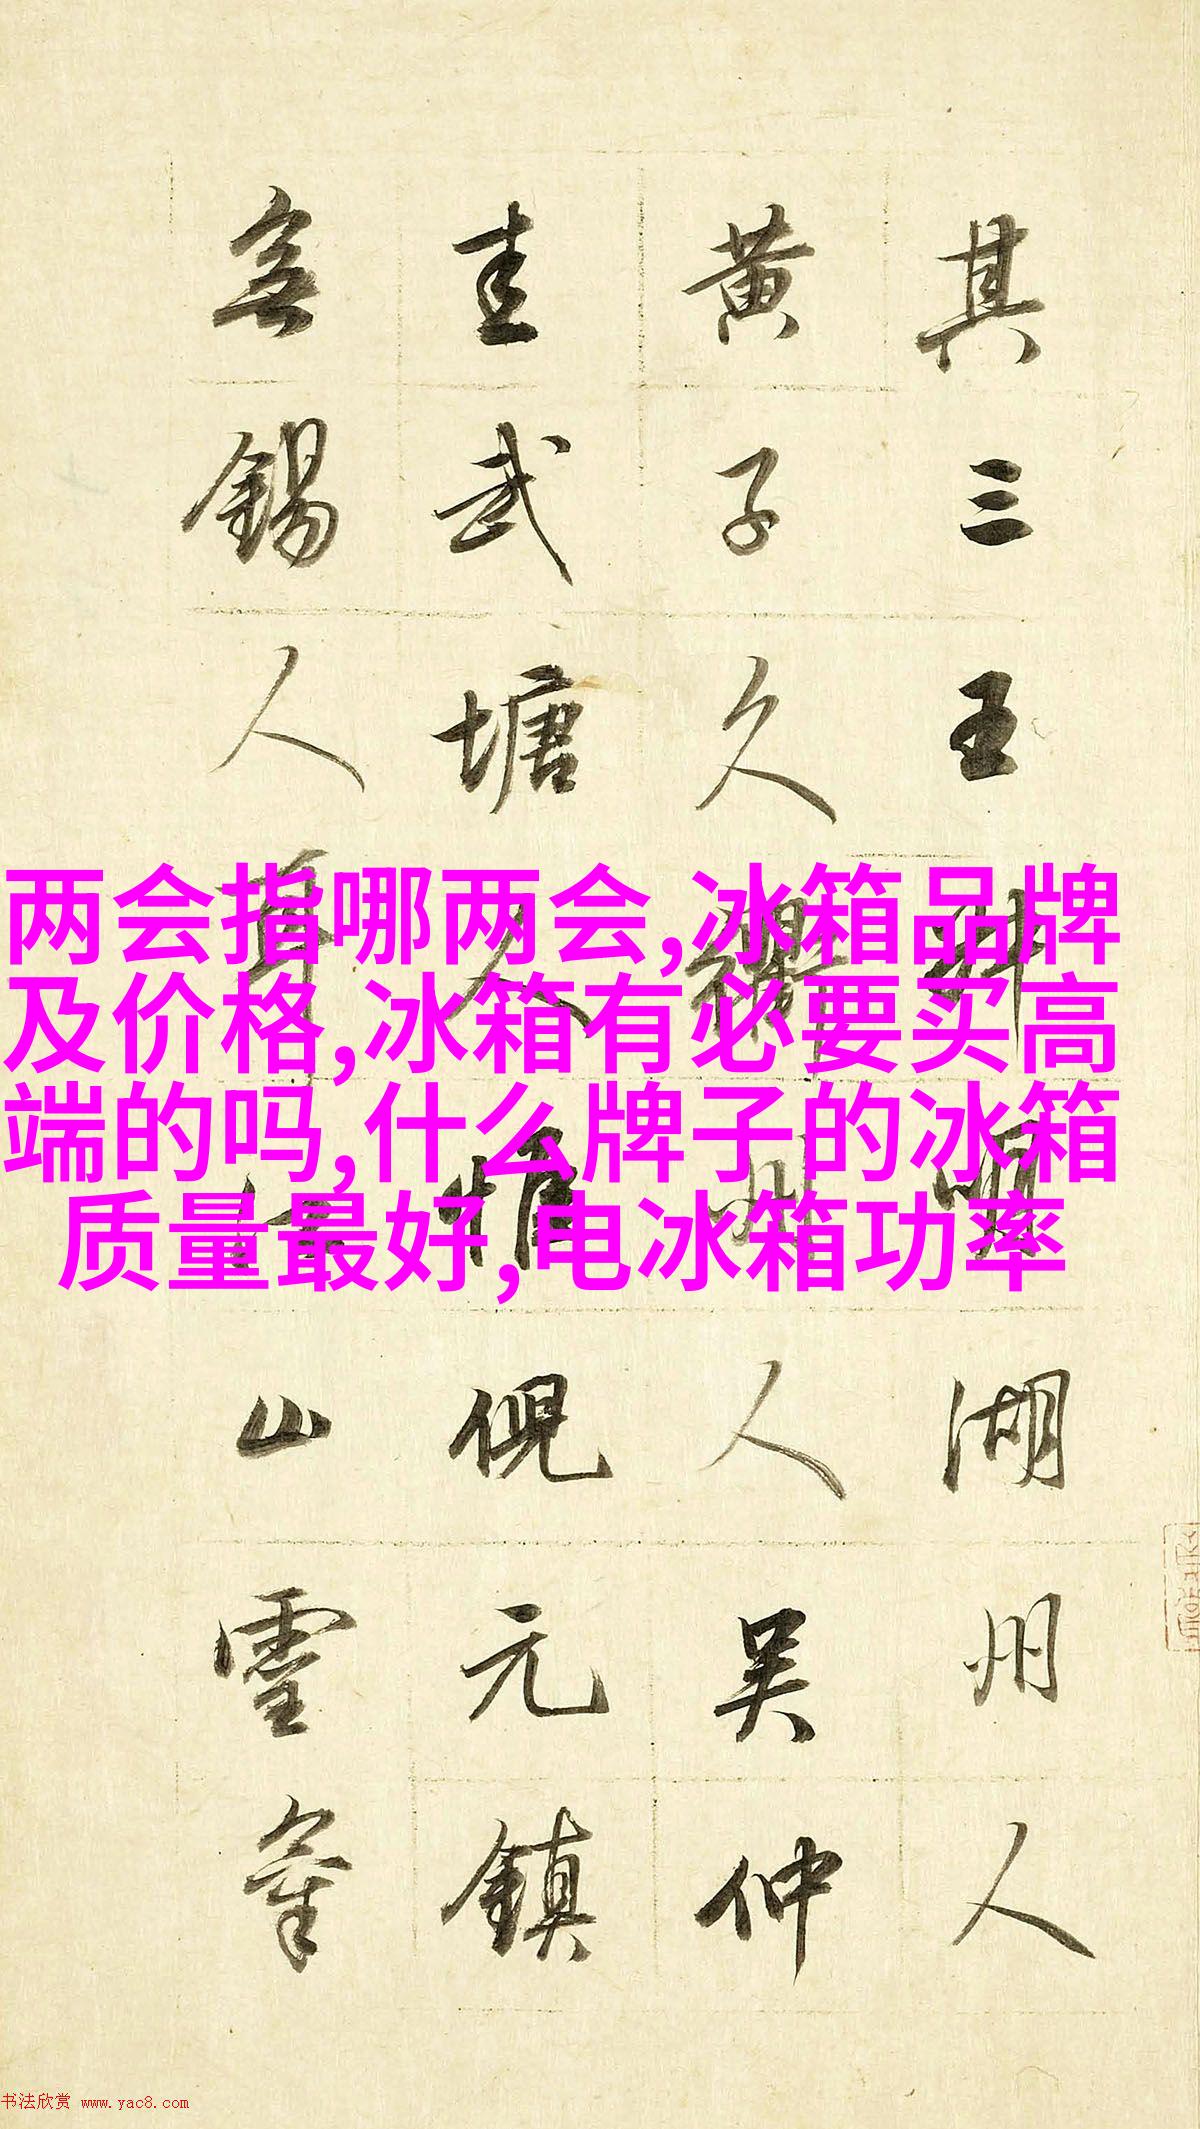 其三王叔明湖州人
黄子久衢州人吴仲
圭武塘人惟倪元鎮
無錫人耳江山靈氣
两会指哪两会,冰箱品牌
及价格,冰箱有必要买高
端的吗,什么牌子的冰箱
质量最好,电冰箱功率
书法欣赏 www.yac8.com